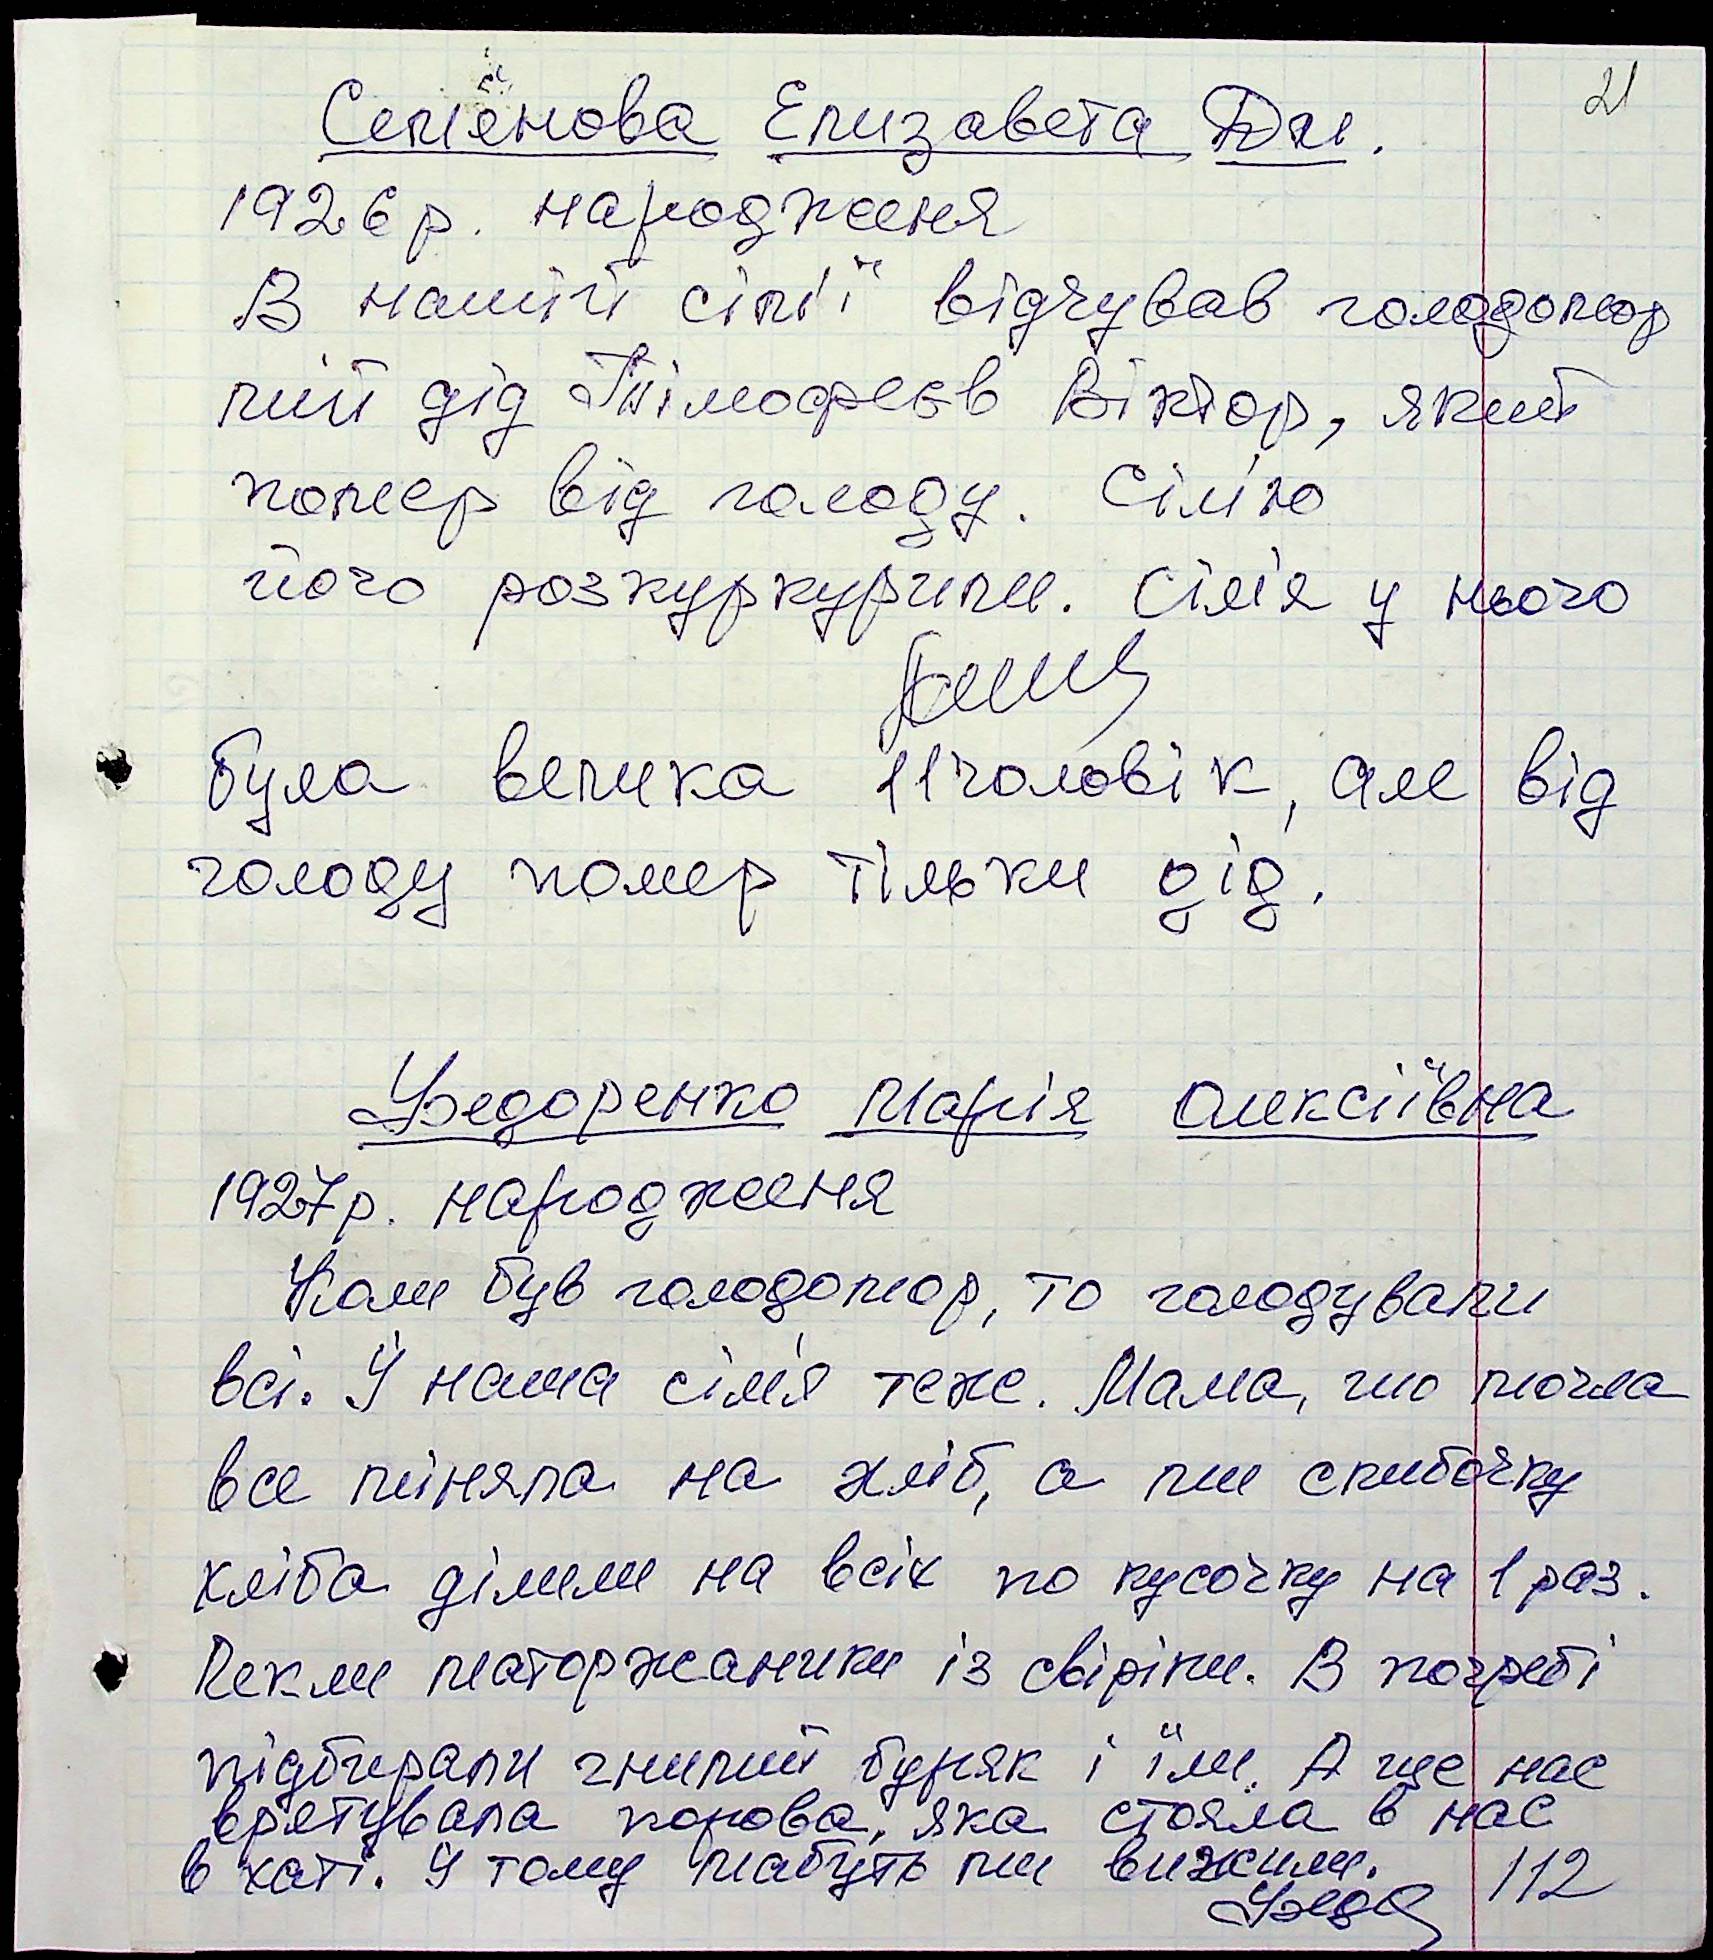 21
Семёнова Елизавета Дм.
1926 р. народження
В нашій сім'ї відчував голодомор
мій дід Тімофеєв Віктор, який
помер від голоду. Сім'ю
його розкуркурили. Сім'я у нього
була велика 11 чоловік, але від
голоду помер тільки дід.
Федоренко Марія Олексіївна
1927 р. народження
Коли був голодомор, то голодували
всі. Й наша сім'я теже. Мама, що могла
все міняла на хліб, а ми скибочку
хліба ділили на всіх по кусочку на 1 раз.
Пекли маторжаники із свіріпи. В погребі
підбирали гнилий буряк і їли. А ще нас
врятувала корова, яка стояла в нас
в хаті. Й тому мабуть ми вижили.
112